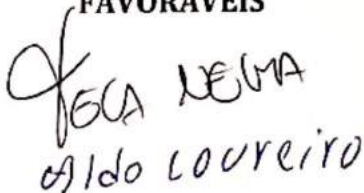 FAVORÁVEIS
TECA NELMA
Aldo Loureiro